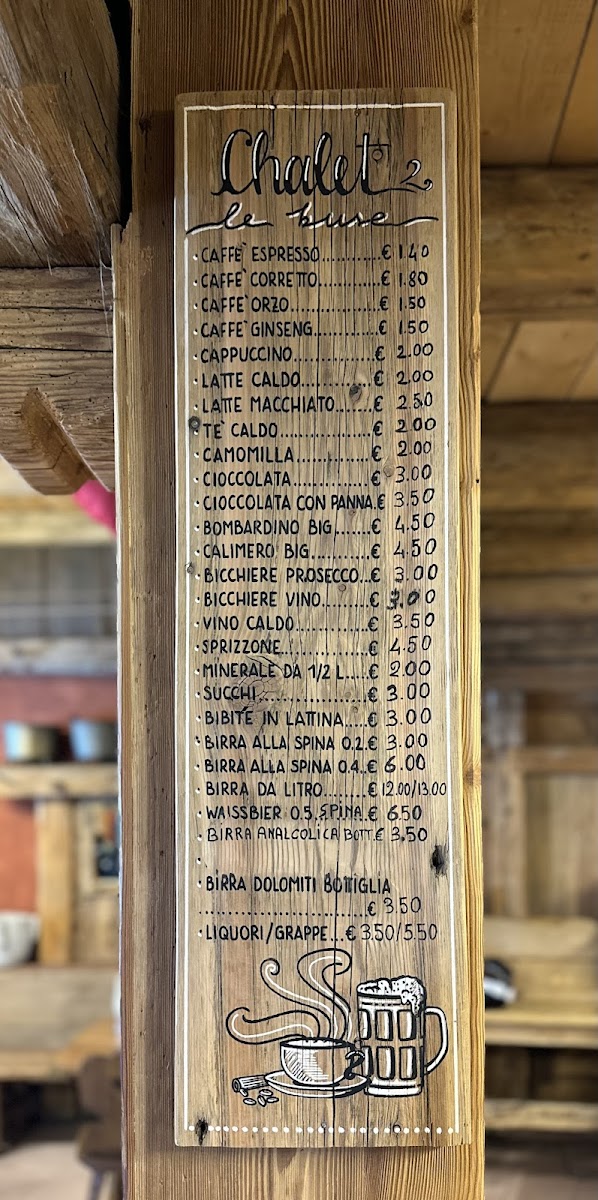 Chalet 2
le buse
· CAFFÈ ESPRESSO...........€ 1.40
· CAFFÈ CORRETTO...........€ 1.80
· CAFFÈ ORZO................€ 1.50
· CAFFÈ GINSENG............€ 1.50
· CAPPUCCINO...............€ 2.00
· LATTE CALDO..............€ 2.00
· LATTE MACCHIATO.......€ 2.50
· TÈ CALDO.................€ 2.00
· CAMOMILLA..............€ 2.00
· CIOCCOLATA..............€ 3.00
· CIOCCOLATA CON PANNA.€ 3.50
· BOMBARDINO BIG.......€ 4.50
· CALIMERO BIG...........€ 4.50
· BICCHIERE PROSECCO...€ 3.00
· BICCHIERE VINO.........€ 3.00
· VINO CALDO..............€ 3.50
· SPRIZZONE................€ 4.50
· MINERALE DA 1/2 L.....€ 2.00
· SUCCHI....................€ 3.00
· BIBITE IN LATTINA....€ 3.00
· BIRRA ALLA SPINA 0.2.€ 3.00
· BIRRA ALLA SPINA 0.4..€ 6.00
· BIRRA DA LITRO........€ 12.00/13.00
· WAISSBIER 0.5. SPINA.€ 6.50
· BIRRA ANALCOLICA BOTT.€ 3.50
·
· BIRRA DOLOMITI BOTTIGLIA
..............................€ 3.50
· LIQUORI/GRAPPE...€ 3.50/5.50